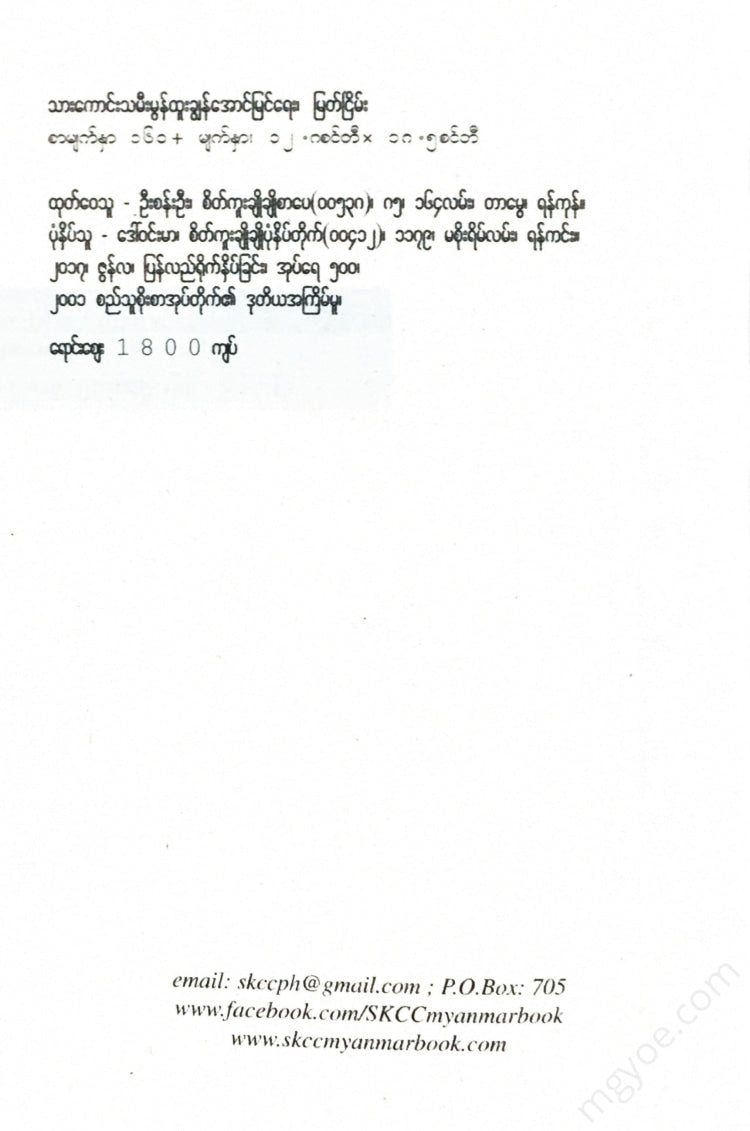 သားကောင်းသမီးမွန်ထူးချွန်အောင်မြင်ရေး၊ မြတ်ငြိမ်း
စာမျက်နှာ ၁၆၁+ မျက်နှာ၊ ၁၂.ဂစင်တီ× ၁ဂ.၅စင်တီ
ထုတ်ဝေသူ - ဦးစန်းဦး၊ စိတ်ကူးချိုချိုစာပေ(၀၀၅၃ဂ)၊ ဂ၅၊ ၁၆၄လမ်း၊ တာမွေ၊ ရန်ကုန်။
ပုံနှိပ်သူ - ဒေါ်ဝင်းမာ၊ စိတ်ကူးချိုချိုပုံနှိပ်တိုက်(၀၀၄၁၂)၊ ၁၁၇၉၊ မစိုးရိမ်လမ်း၊ ရန်ကင်း။
၂၀၁၇၊ ဇွန်လ၊ ပြန်လည်ရိုက်နှိပ်ခြင်း၊ အုပ်ရေ ၅၀၀၊
၂၀၀၁ စည်သူစိုးစာအုပ်တိုက်၏ ဒုတိယအကြိမ်မူ၊
ရောင်းဈေး 1 8 0 0 ကျပ်
email: skccph@gmail.com ; P.O.Box: 705
www.facebook.com/SKCCmyanmarbook
www.skccmyanmarbook.com
mgyoe.com